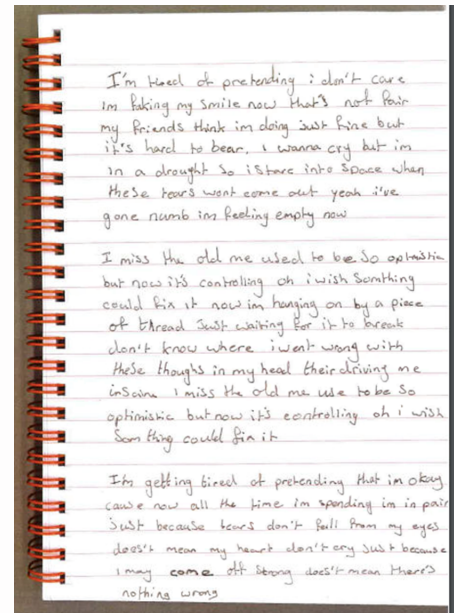 I'm tired of pretending i don't care
im faking my smile now that's not fair
my friends think im doing just fine but
it's hard to bear, i wanna cry but im
in a drought so i stare into space when
these tears wont come out yeah i've
gone numb im feeling empty now
I miss the old me used to be so optimistic
but now it's controlling oh i wish somthing
could fix it now im hanging on by a piece
of thread just waiting for it to break
don't know where i went wrong with
these thoughs in my head their driving me
insaine i miss the old me use to be so
optimistic but now it's controlling oh i wish
som thing could fix it
I'm getting tired of pretending that im okay
cause now all the time im spending im in pain
just because tears don't fall from my eyes
does't mean my heart don't cry just because
i may come off strong does't mean there's
nothing wrong